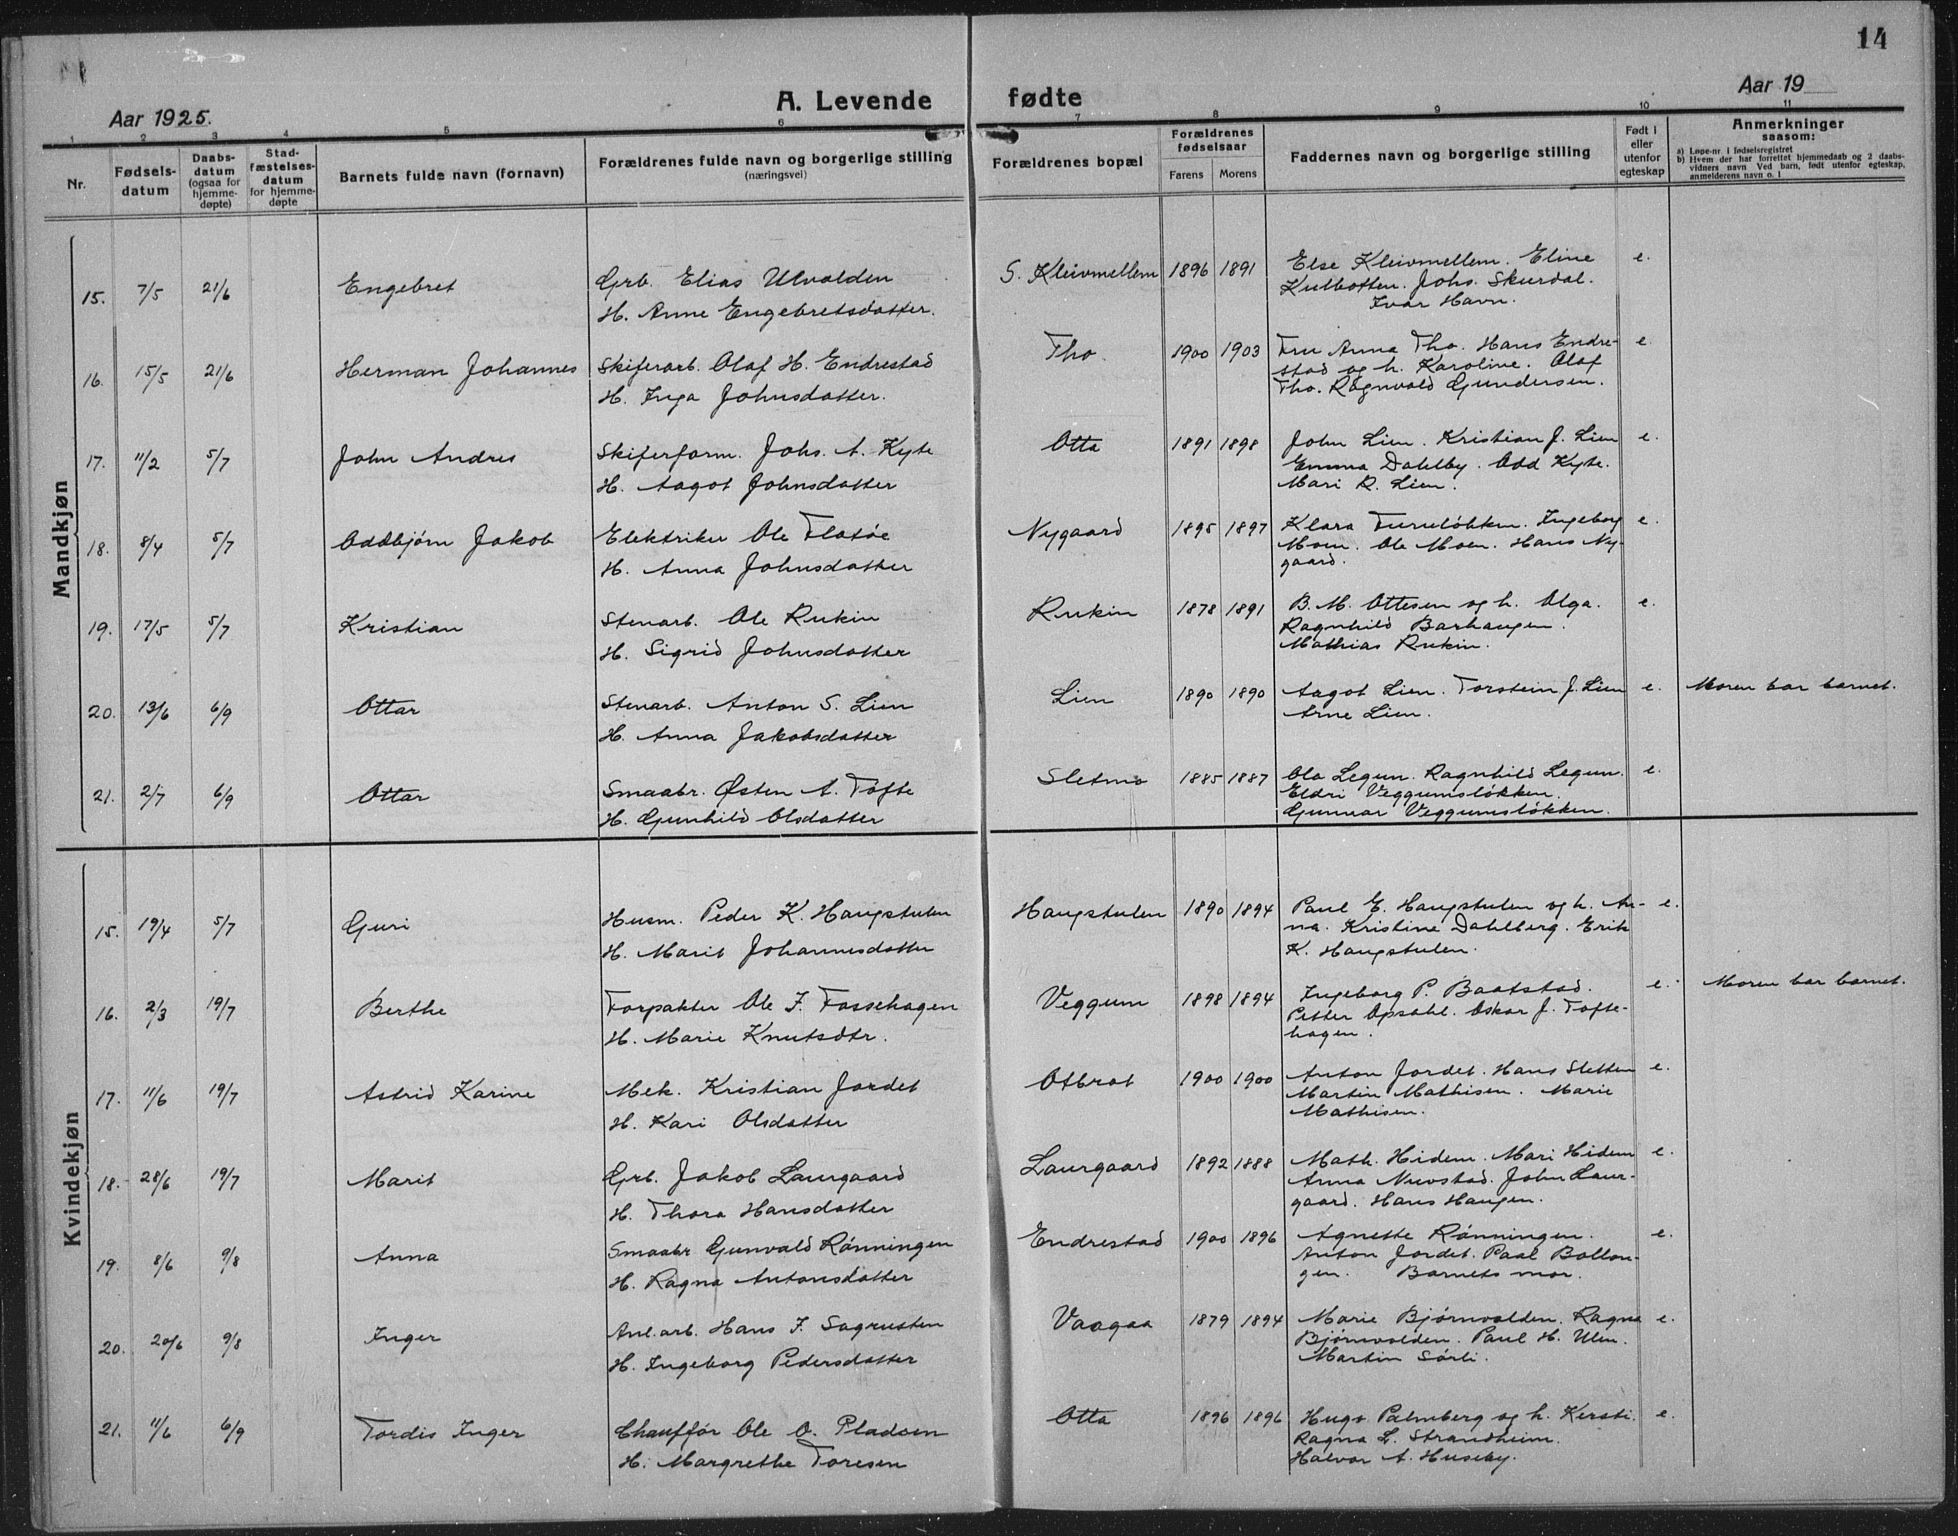 14
Aar 1925.
A. Levende
fødte
Aar 19
1 2 3 4 5 6 7 8 9 10 11
Nr.
Fødsels-
datum
Daabs-
datum
(ogsaa for
hjemme-
døpte)
Stad-
fæstelses-
datum
for hjemme-
døpte
Barnets fulde navn (fornavn)
Forældrenes fulde navn og borgerlige stilling
(næringsvei)
Forældrenes bopæl
Forældrenes
fødselsaar
Farens Morens
Faddernes navn og borgerlige stilling
Født i
eller
utenfor
egteskap
Anmerkninger
saasom:
a) Løpe-nr. i fødselsregistret
b) Hvem der har forrettet hjemmedaab og 2 daabs-
vidners navn Ved barn, født utenfor egteskap,
anmelderens navn o. l
Mandkjøn
15. 7/5 21/6 Engebret Grb. Elias Ulvolden S. Kleivmellem 1896 1891 Else Kleivmellem. Eline e.
H. Anne Engebretsdatter. Kulbotten. Johs. Skurdal.
Ivar Havn.
16. 15/5 21/6 Herman Johannes Skiferarb. Olaf H. Endrestad Tho 1900 1903 Fru Anna Tho. Hans Endre- e.
H. Inga Johnsdatter. stad og h. Karoline. Olaf
Tho. Ragnvald Gundersen.
17. 11/2 5/7 John Andres Skiferform. Johs. A. Kyte Otta 1891 1898 John Lien. Kristian J. Lien e.
H. Aagot Johnsdatter Emma Dahlby. Odd Kyte.
Mari R. Lien.
18. 8/4 5/7 Oddbjørn Jakob Elektriker Ole Flatøe Nygaard 1895 1897 Klara Furuløkken. Ingeborg e.
H. Anna Johnsdatter Moen. Ole Moen. Hans Ny-
gaard.
19. 17/5 5/7 Kristian Stenarb. Ole Rukin Rukin 1878 1891 B. M. Ottesen og h. Olga. e.
H. Sigrid Johnsdatter Ragnhild Barhaugen.
Mathias Rukin.
20. 13/6 6/9 Ottar Stenarb. Anton S. Lien Lien 1890 1890 Aagot Lien. Torstein J. Lien e. Moren bar barnet.
H. Anna Jakobsdatter Arne Lien.
21. 2/7 6/9 Ottar Smaabr. Østen A. Tofte Sletmo 1885 1887 Ola Legum. Ragnhild Legum. e.
H. Gunhild Olsdatter Eldri Veggumsløkken.
Gunnar Veggumsløkken.
Kvindekjøn
15. 19/4 5/7 Guri Husm. Peder K. Haugstulen Haugstulen 1890 1894 Paul E. Haugstulen og h. An- e.
H. Marit Johannesdatter na. Kristine Dahlberg. Erik
K. Haugstulen.
16. 2/3 19/7 Berthe Forpakter Ole J. Fossehagen Veggum 1898 1894 Ingeborg P. Baatstad. e. Moren bar barnet.
H. Marie Knutsdtr. Petter Opsahl. Oskar J. Tofte-
hagen.
17. 11/6 19/7 Astrid Karine Mek. Kristian Jordet Otbrot 1900 1900 Anton Jordet. Hans Sletten e.
H. Kari Olsdatter Martin Mathisen. Marie
Mathisen.
18. 28/6 19/7 Marit Grb. Jakob Laurgaard Laurgaard 1892 1888 Math. Hidem. Mari Hidem e.
H. Thora Hansdatter Anna Nuvstad. John Laur-
gaard. Hans Haugen.
19. 8/6 9/8 Anna Smaabr Gunvald Rønningen Endrestad 1900 1896 Agnette Rønningen. e.
H. Ragna Antonsdatter Anton Jordet. Paal Bollon-
gen. Barnets mor.
20. 20/6 9/8 Inger Anl.arb. Hans J. Sagrusten Vaagaa 1879 1894 Marie Bjørnvolden. Ragna e.
H. Ingeborg Pedersdatter Bjørnvolden. Paul H. Ulen.
Martin Sørli.
21. 11/6 6/9 Tordis Inger Chauffør Ole O. Pladsen Otta 1896 1896 Hugo Palmberg og h. Kersti. e.
H. Margrethe Toresen Ragna L. Strandheim.
Halvor A. Huseby.